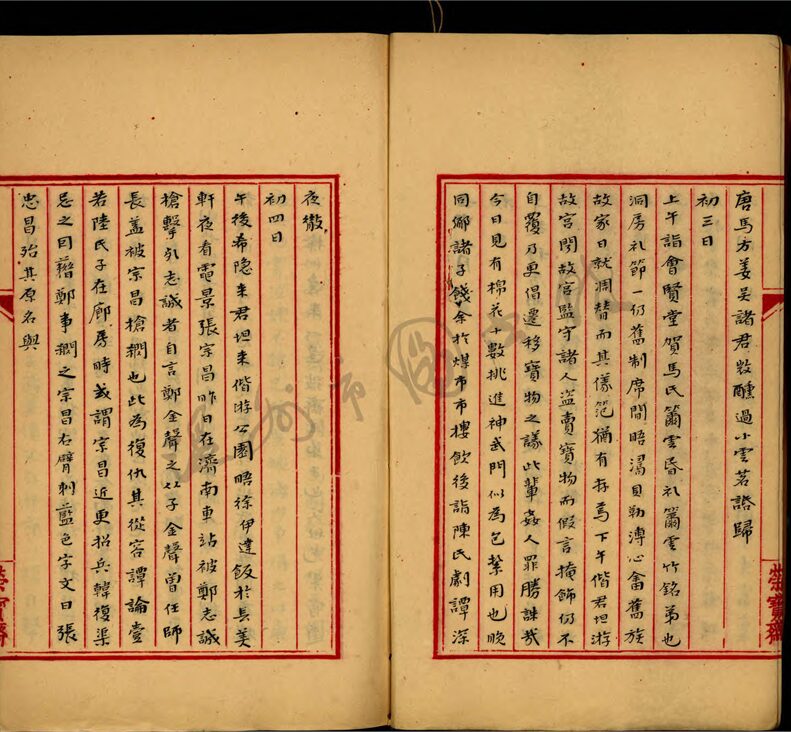 唐馬方姜吳諸君畋醺過小雲茗話歸
初三日
上午詣會賢堂賀馬氏籋雲昏礼籋雲竹銘弟也
洞房礼節一仍舊制席間晤濤貝勒溥心畬舊族
故家日就凋替而其儀范猶有存焉下午偕君坦游
故宮閱故宮監守諸人盜賣寶物而假言掩飾仍不
自覆乃更倡遷移寶物之議此輩姦人罪勝誅哉
今日見有棉花十數挑進神武門似為包紮用也晚
同僚諸子餞余於煤市市樓飲後詣陳氏劇譚深
夜散
初四日
午後希隐来君坦来偕游公園晤徐伊達飯於長美
軒夜看電景張宗昌昨日在濟南車站被鄭志誠
槍擊死志誠者自言鄭金聲之子金聲曾任師
長蓋被宗昌槍擱也此為復仇其從容譚論壹
若陸氏子在廊房時或謂宗昌近更招兵韓復渠
忌之因藉鄭事擱之宗昌右臂刺藍色字文曰張
忠昌殆其原名與
榮寶齋
榮寶齋